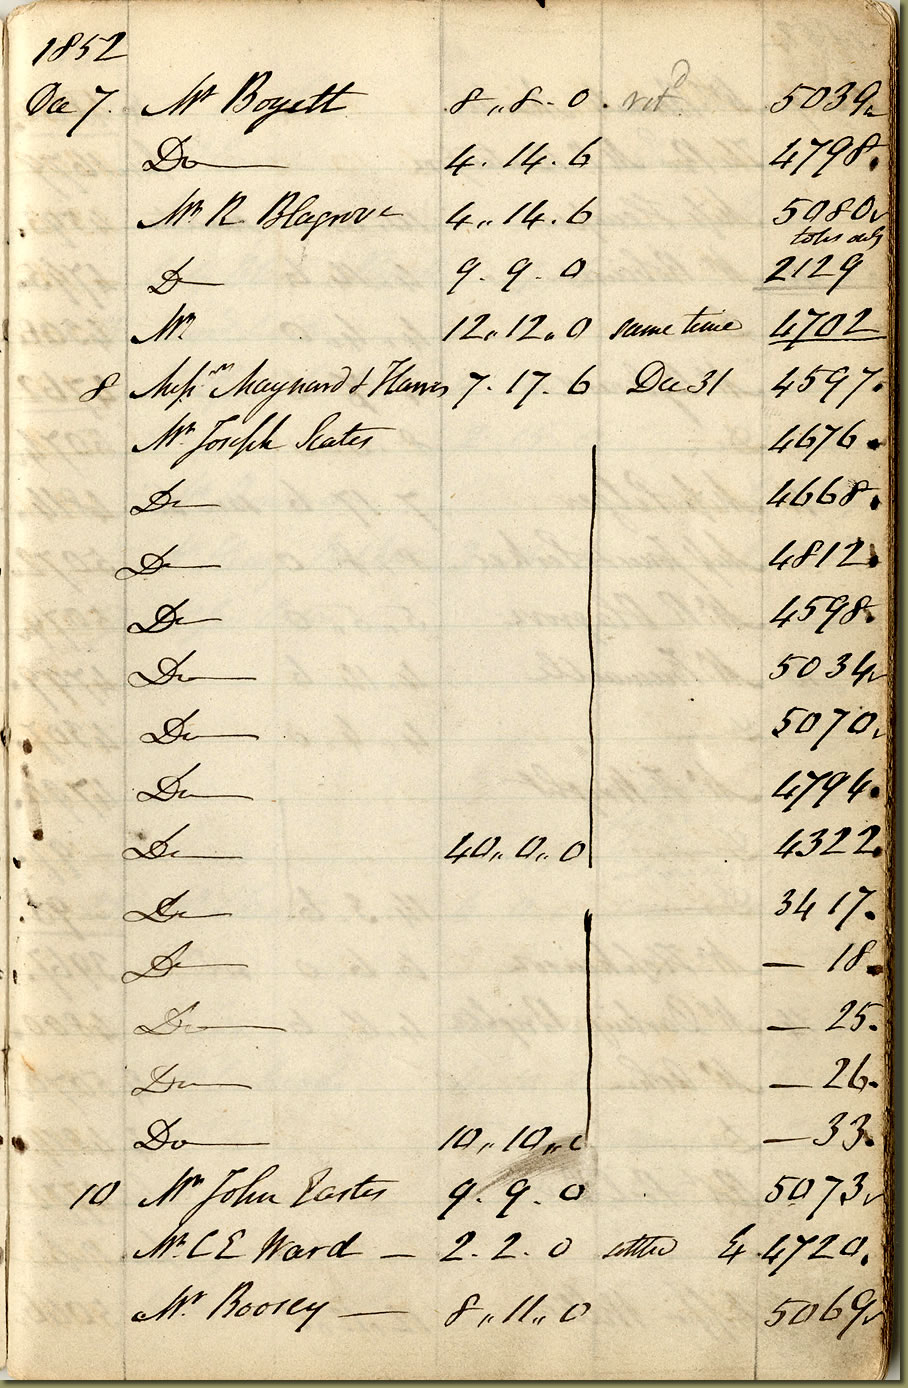 1852
Dec 7. Mr Boyett 8,,8-0. retd 5039
Do 4.14.6 4798.
Mr R Blagrove 4,,14.6 5080
D 9.9.0 2129
Mr 12,,12,,0 same time 4702
8 Messrs Maynard & Harris 7.17.6 Dec 31 4597.
Mr Joseph Scates 4676.
Do 4668.
Do 4812.
Do 4598.
Do 5034
Do 5070
Do 4794.
Do 40,,0,,0 4322.
Do 3417.
Do — 18.
Do — 25.
Do — 26.
Do 10,,10,,0 — 33.
10 Mr John Easter 9.9.0 5073
Mr C E Ward — 2.2.0 4720.
Mr Boosey — 8,,11,,0 5069